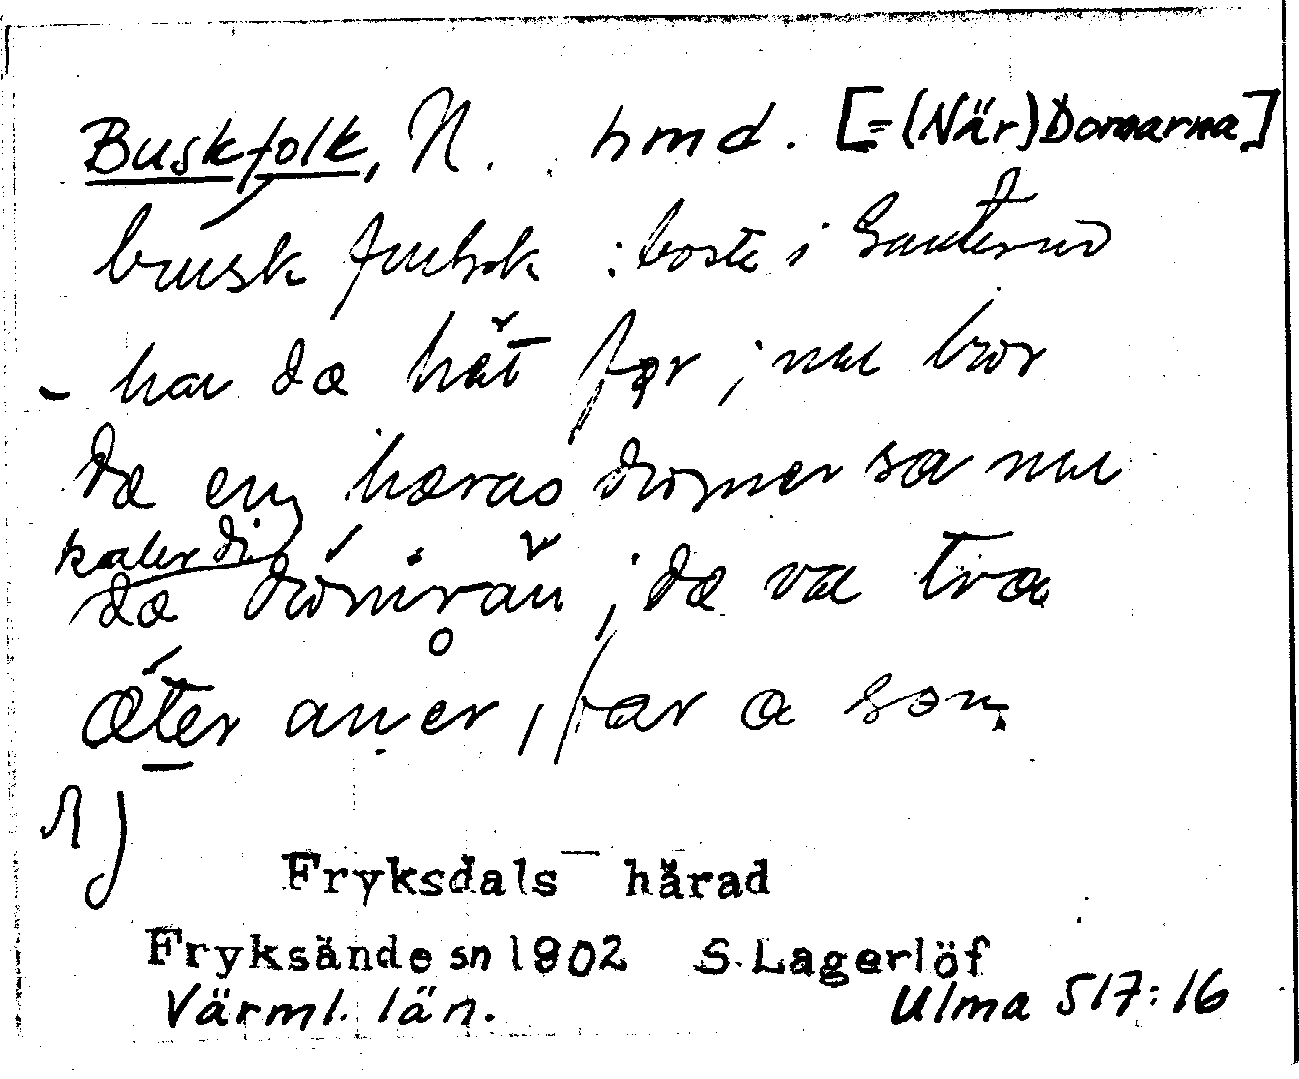 Buskfolk, N. hmd. [=(När)Domarna]
busk : boste i
- ha dæ hät før ; nu bor
dæ en hæras domer sa nu
kaler di
dæ ; dæ va tra
æter aner, far a son
Fryksdals härad
Fryksände sn 1802 S. Lagerlöf
Värml. län. Ulma 517:16